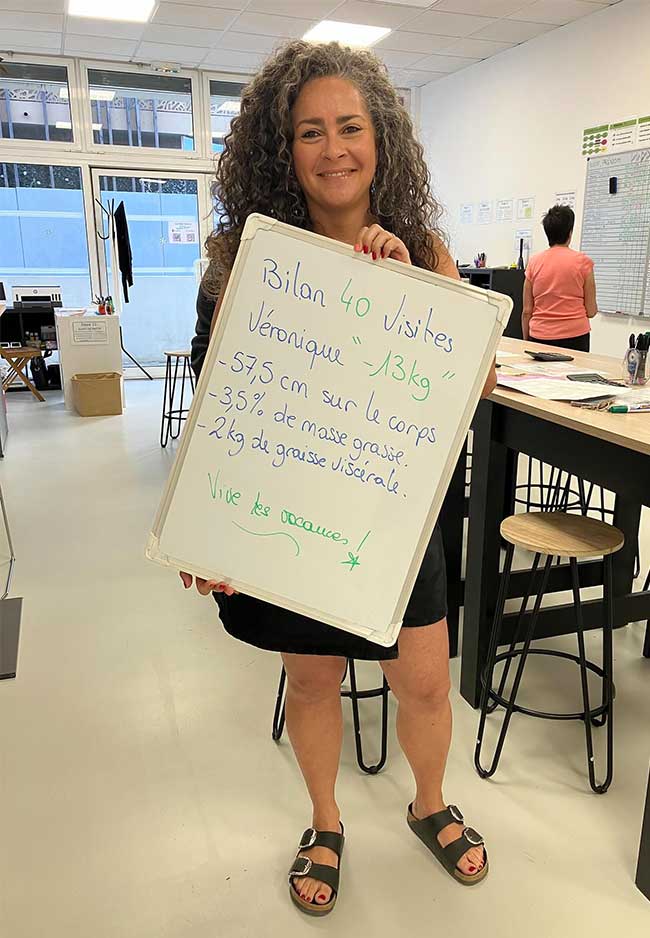 Bilan 40 Visites
Véronique "-13kg"
-57,5 cm sur le corps
-3,5% de masse grasse.
-2kg de graisse viscérale.
Vive les vacances !